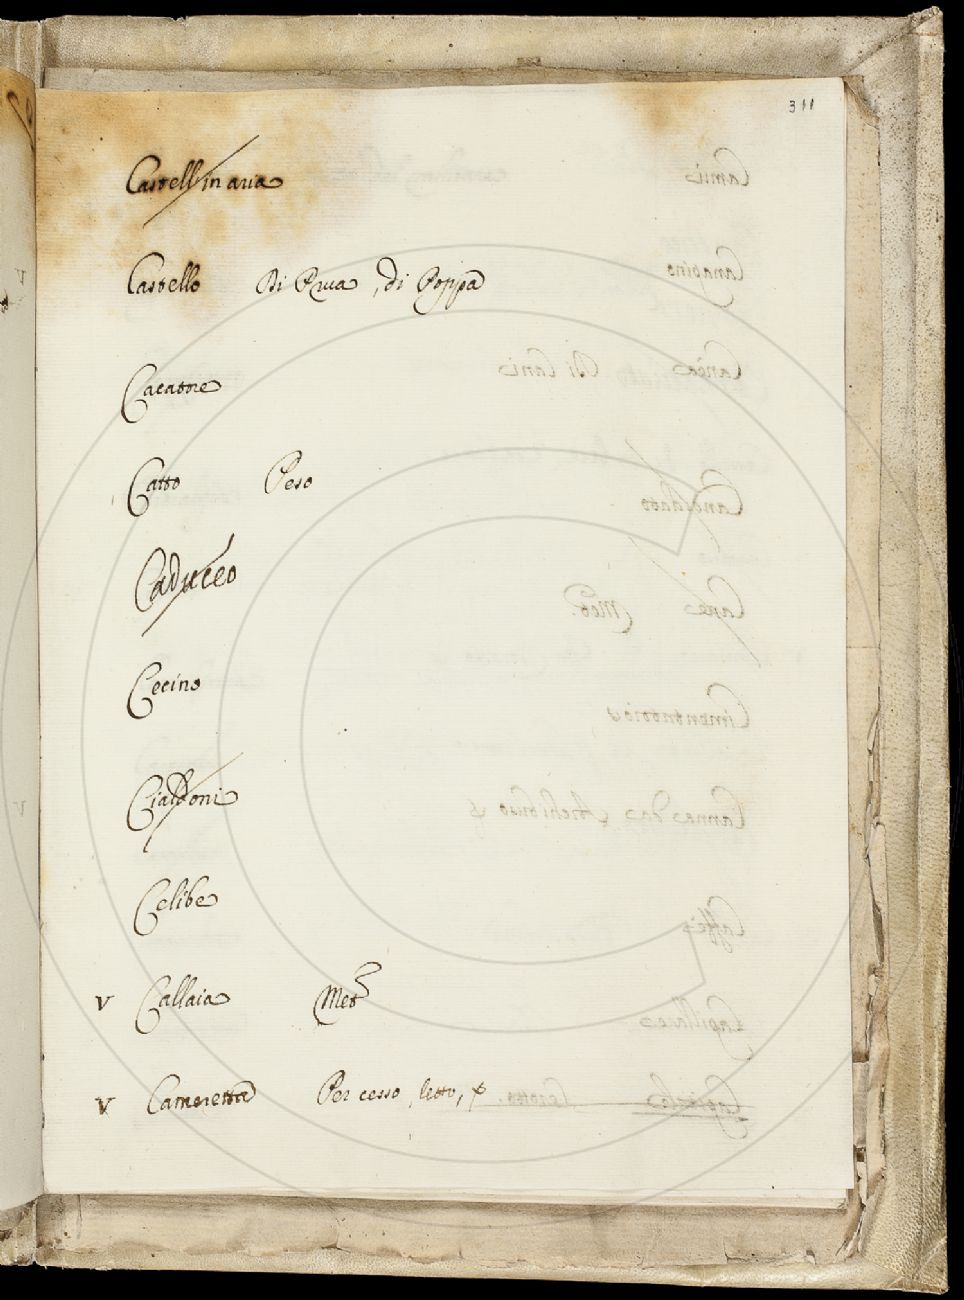 311
Castell in aria
Castello Di Prua, di Poppa
Cacatore
Catto Peso
Caduceo
Cecino
Cialdoni
Celibe
V Callaia Met
V Cameretta Per cesso, letto,